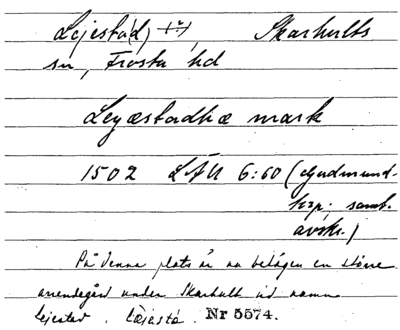 Lejesta(d) +(?), Skarhults
sn, Frosta hd
Leyæstadhæ mark
1502 LÄU 6:60 (Gudmund-
hzp; samt.
avskr.)
På denna plats är nu belägen en större
arrendegård under Skarhult vid namn
Lejestad. Läjestá. Nr 5574.